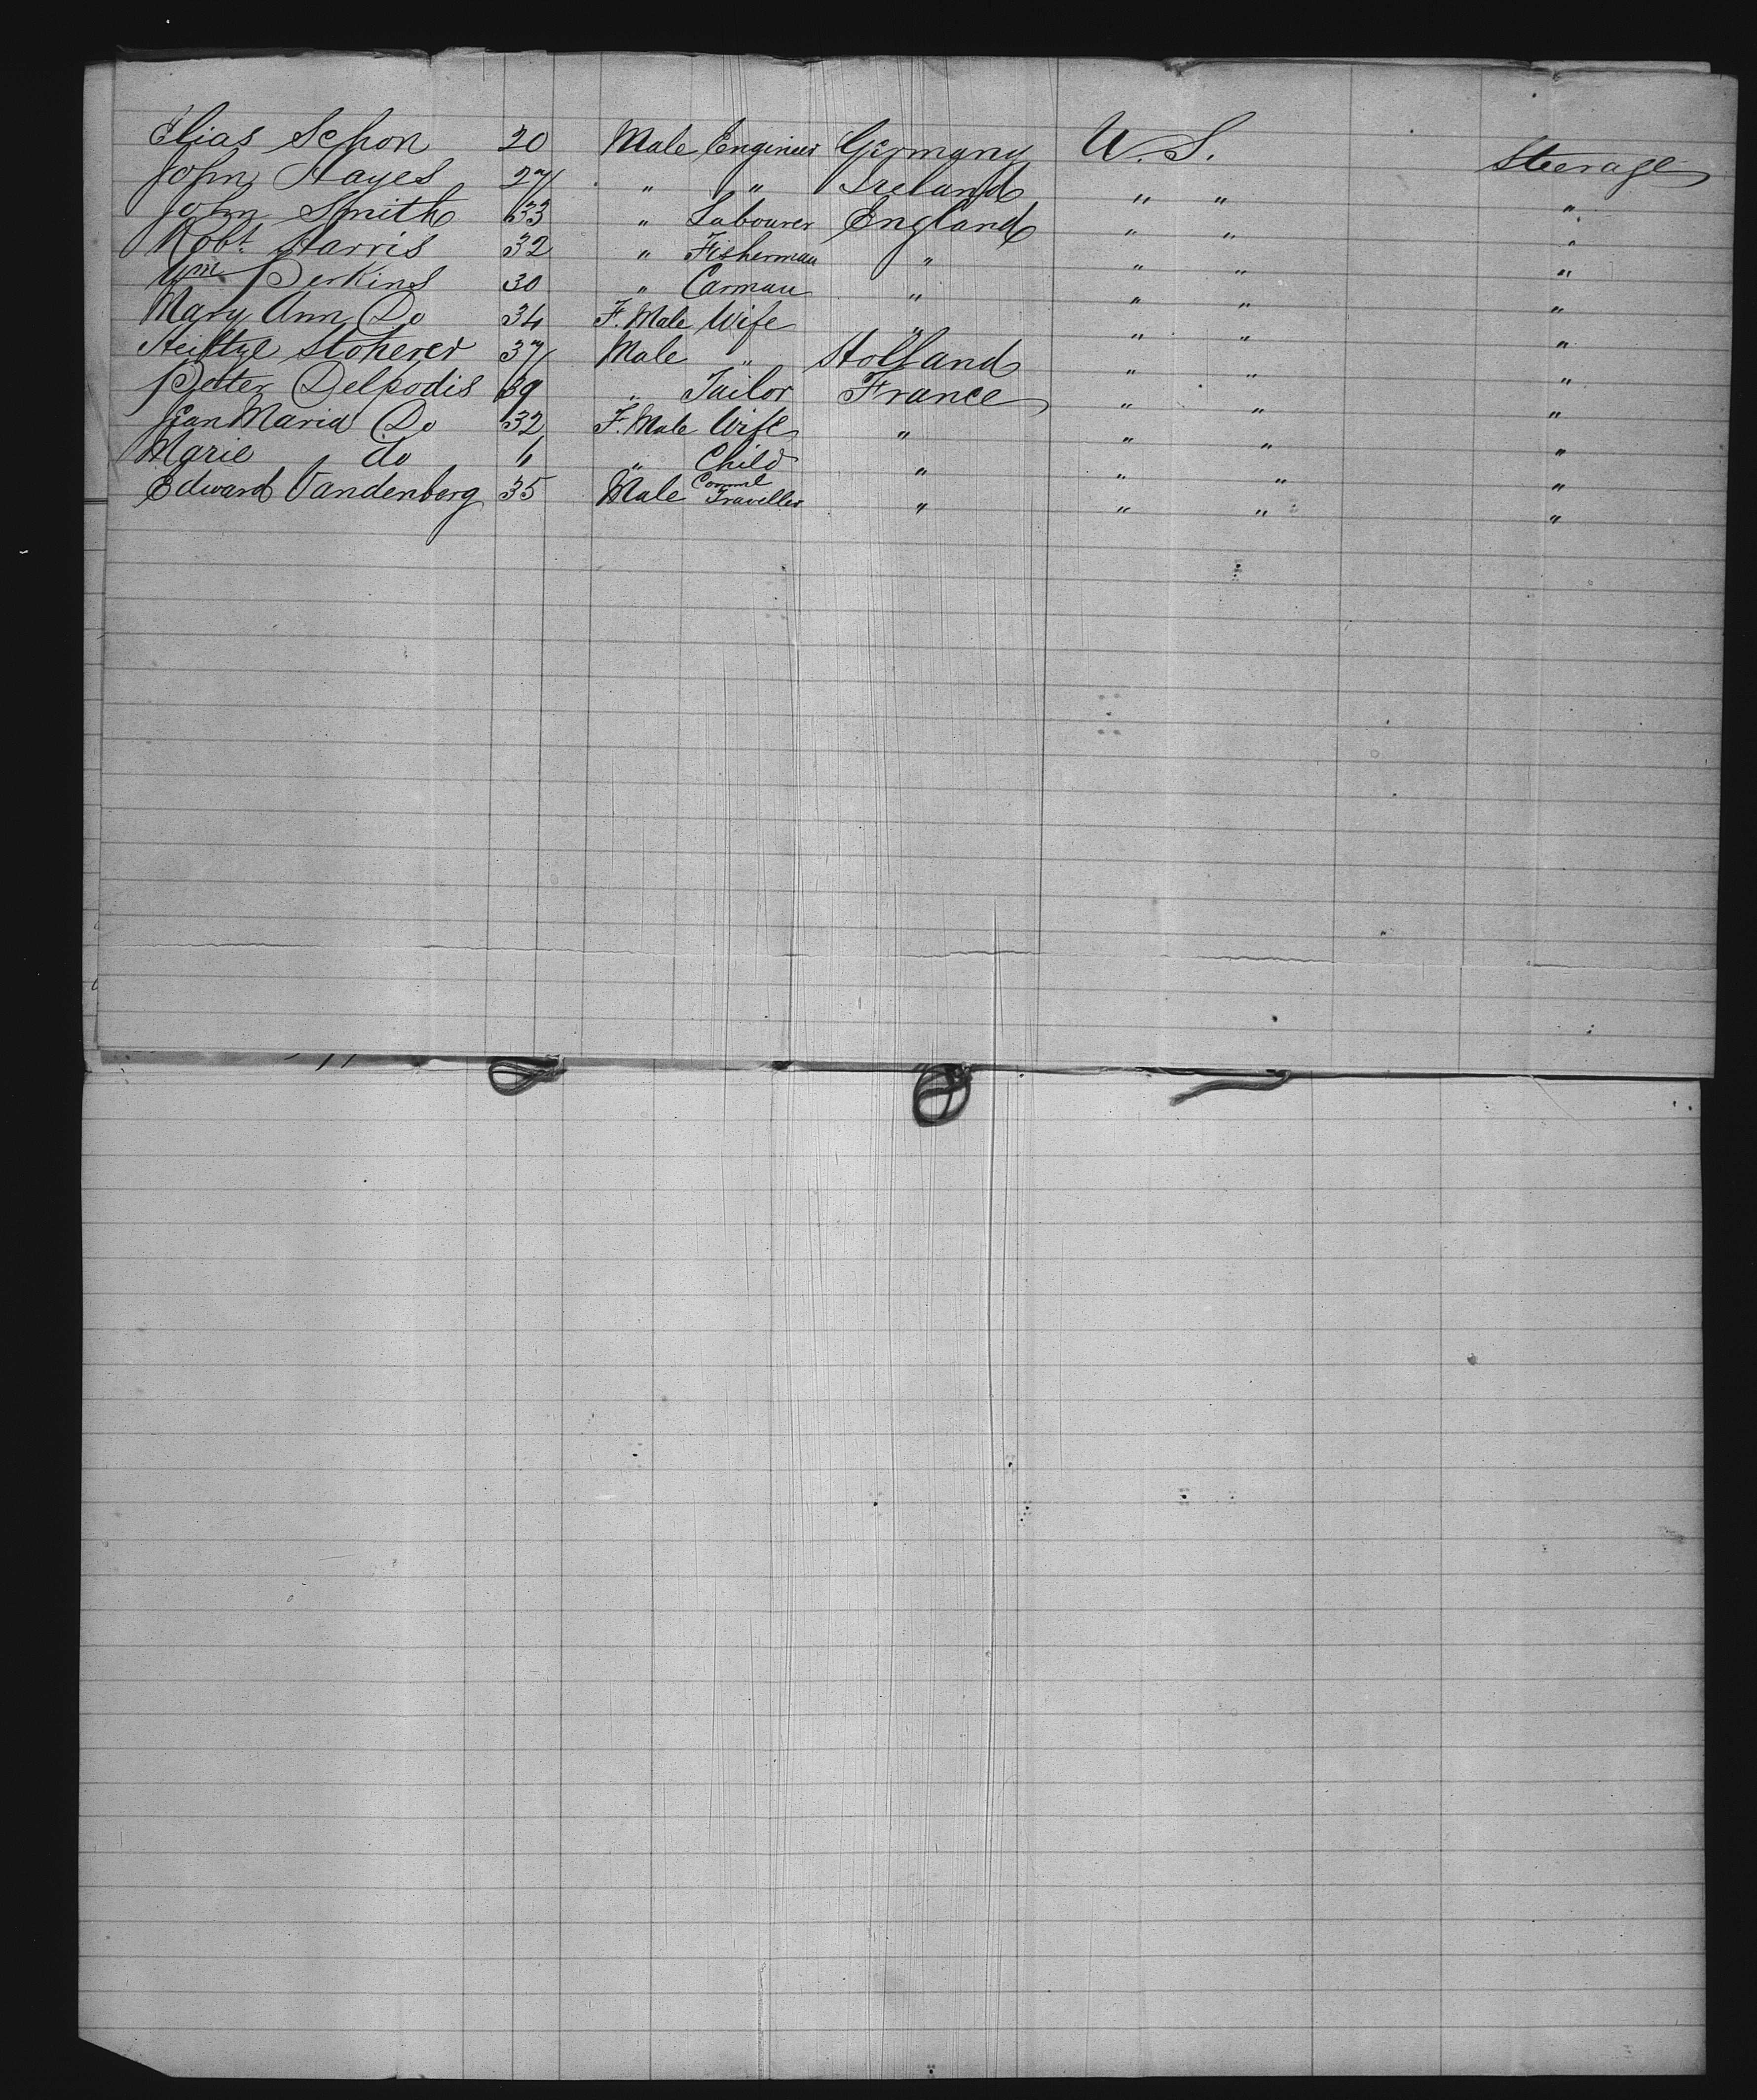 Elias Schon 20 Male Engineer Germany U. S. Steerage
John Hayes 27 " " Ireland " " "
John Smith 33 " Labourer England " " "
Robt Harris 32 " Fisherman " " " "
Wm Perkins 30 " Carman " " " "
Mary Ann Do 34 F. Male Wife " " " "
Stoherer 37 Male " Holland " " "
Petter Delpodis 39 " Tailor France " " "
Jean Maria Do 32 F. Male Wife " " " "
Marie do " Child " " " "
Edward Vandenberg 35 Male Comml Traveller " " " "